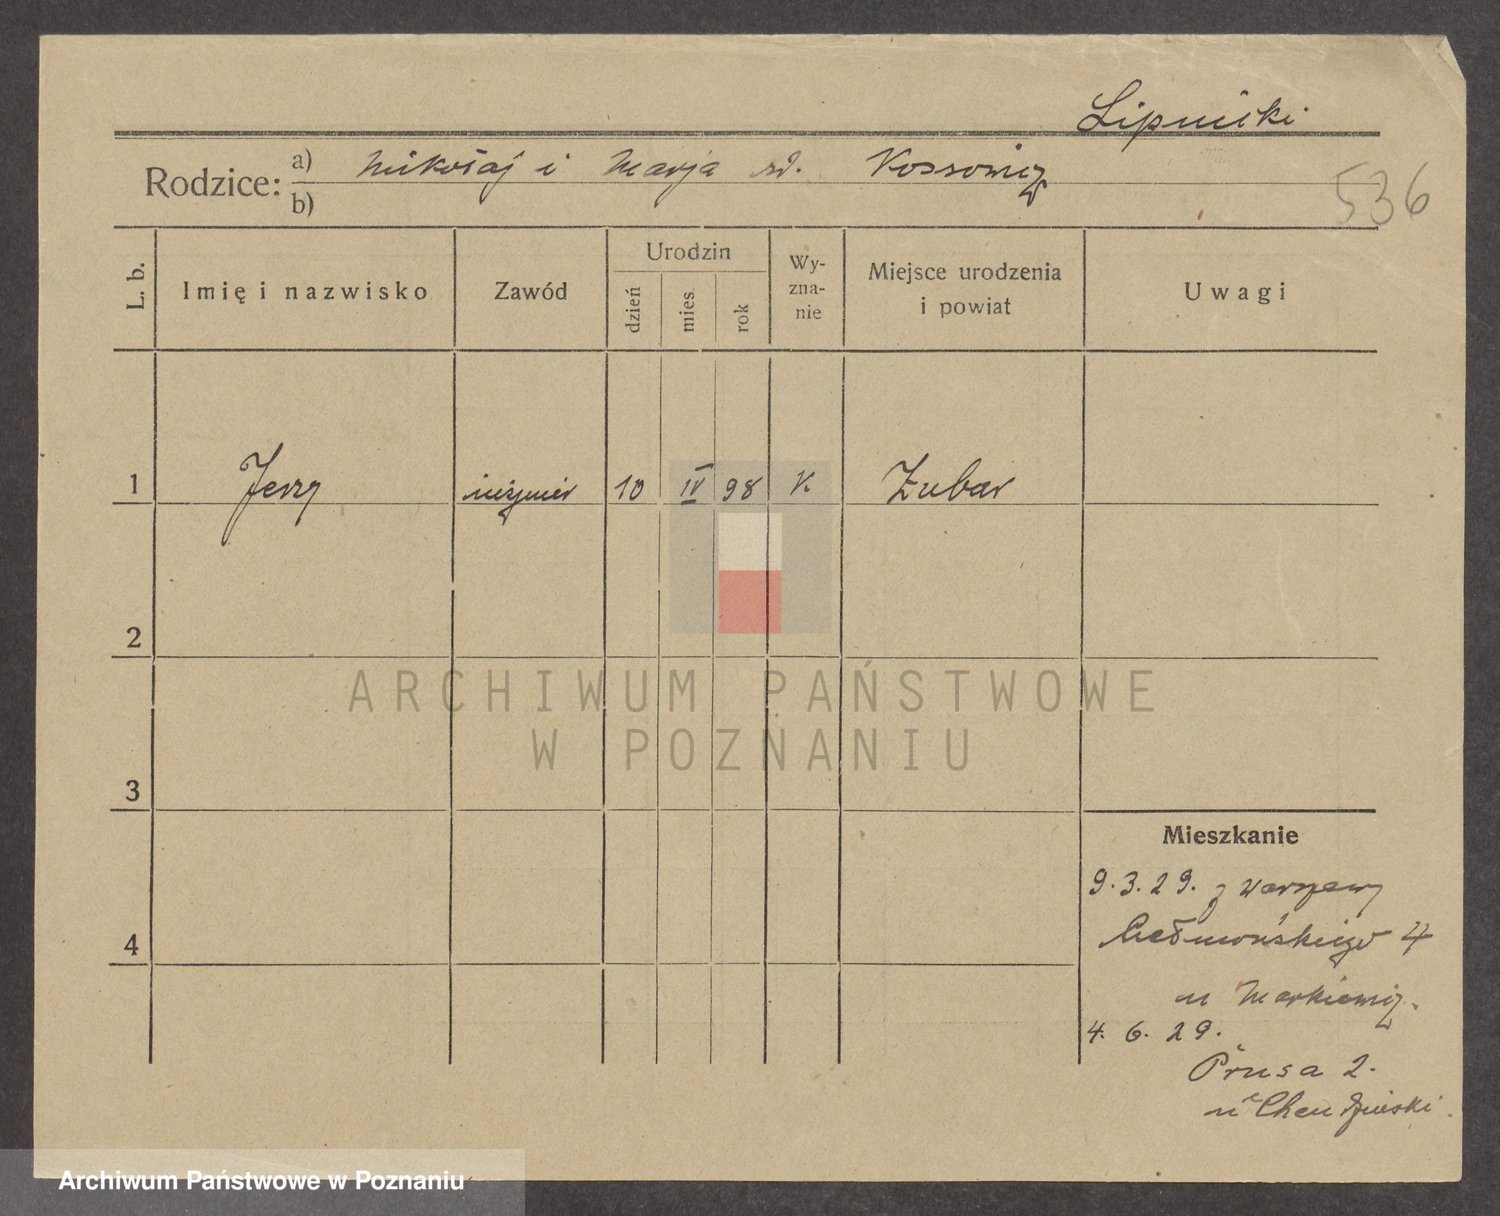 Lipnicki
Rodzice: a) Mikołaj i Marja rd. Kossowicz
b)
536
L. b.
Imię i nazwisko
Zawód
Urodzin
dzień
mies.
rok
Wy-
zna-
nie
Miejsce urodzenia
i powiat
Uwagi
1 Jerzy inżynier 10 IV 98 K Żubar
2
3
4
Mieszkanie
9.3.29. z Warszawy
Chełmońskiego 4
u Markiewicz.
4.6.29.
Prusa 2.
u Chendzyński.
ARCHIWUM PAŃSTWOWE
W POZNANIU
Archiwum Państwowe w Poznaniu